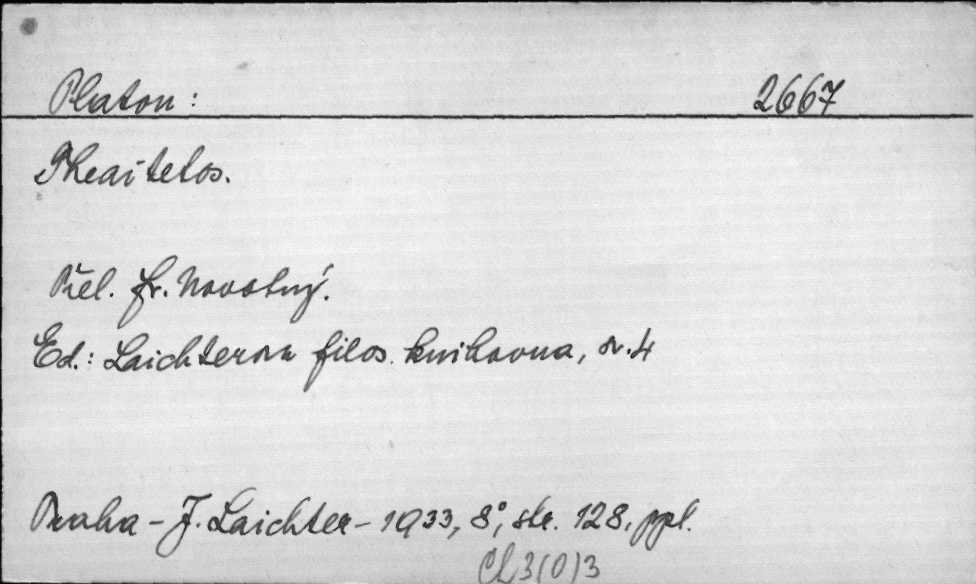 Platon: 2667
Theaitetos.
Přel. Fr. Novotný.
Ed.: Laichterova filos. knihovna, sv. 4
Praha - J. Laichter - 1933, 8°, str. 128, ppl.
Ch 3(0)3